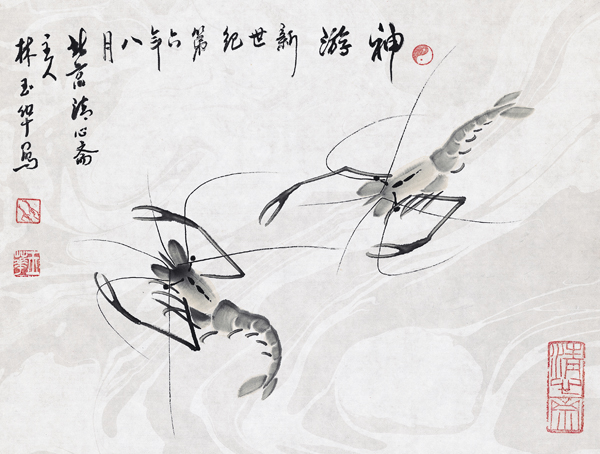 神游 新世纪第六年八月
北京清心斋
主人
林玉华写
清心斋